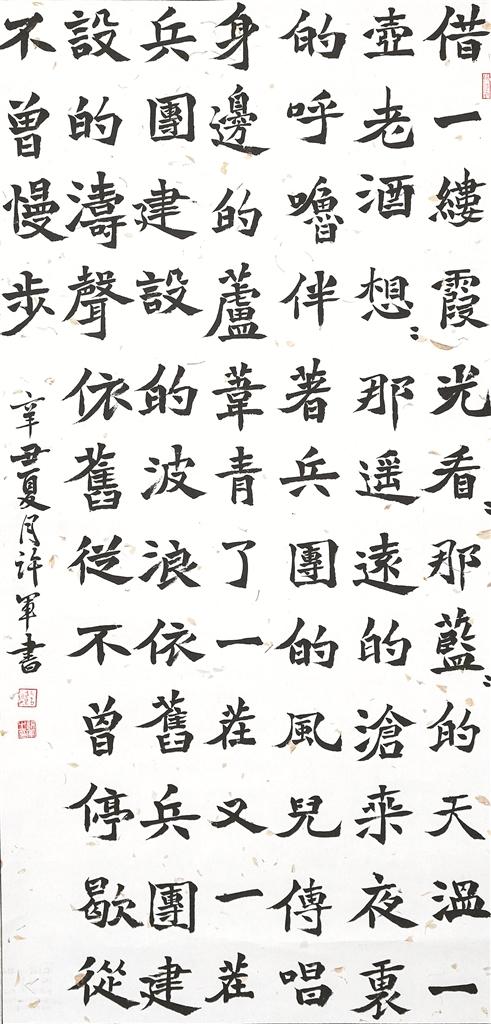 借一縷霞光看:那藍:的天溫一
壺老酒想:那遥遠的滄桒夜裏
的呼嚕伴著兵團的風兒傳唱
身邊的蘆葦青了一茬又一茬
兵團建設的波浪依舊兵團建
設的濤聲依舊從不曾停歇從
不曾慢步
辛丑夏月許軍書